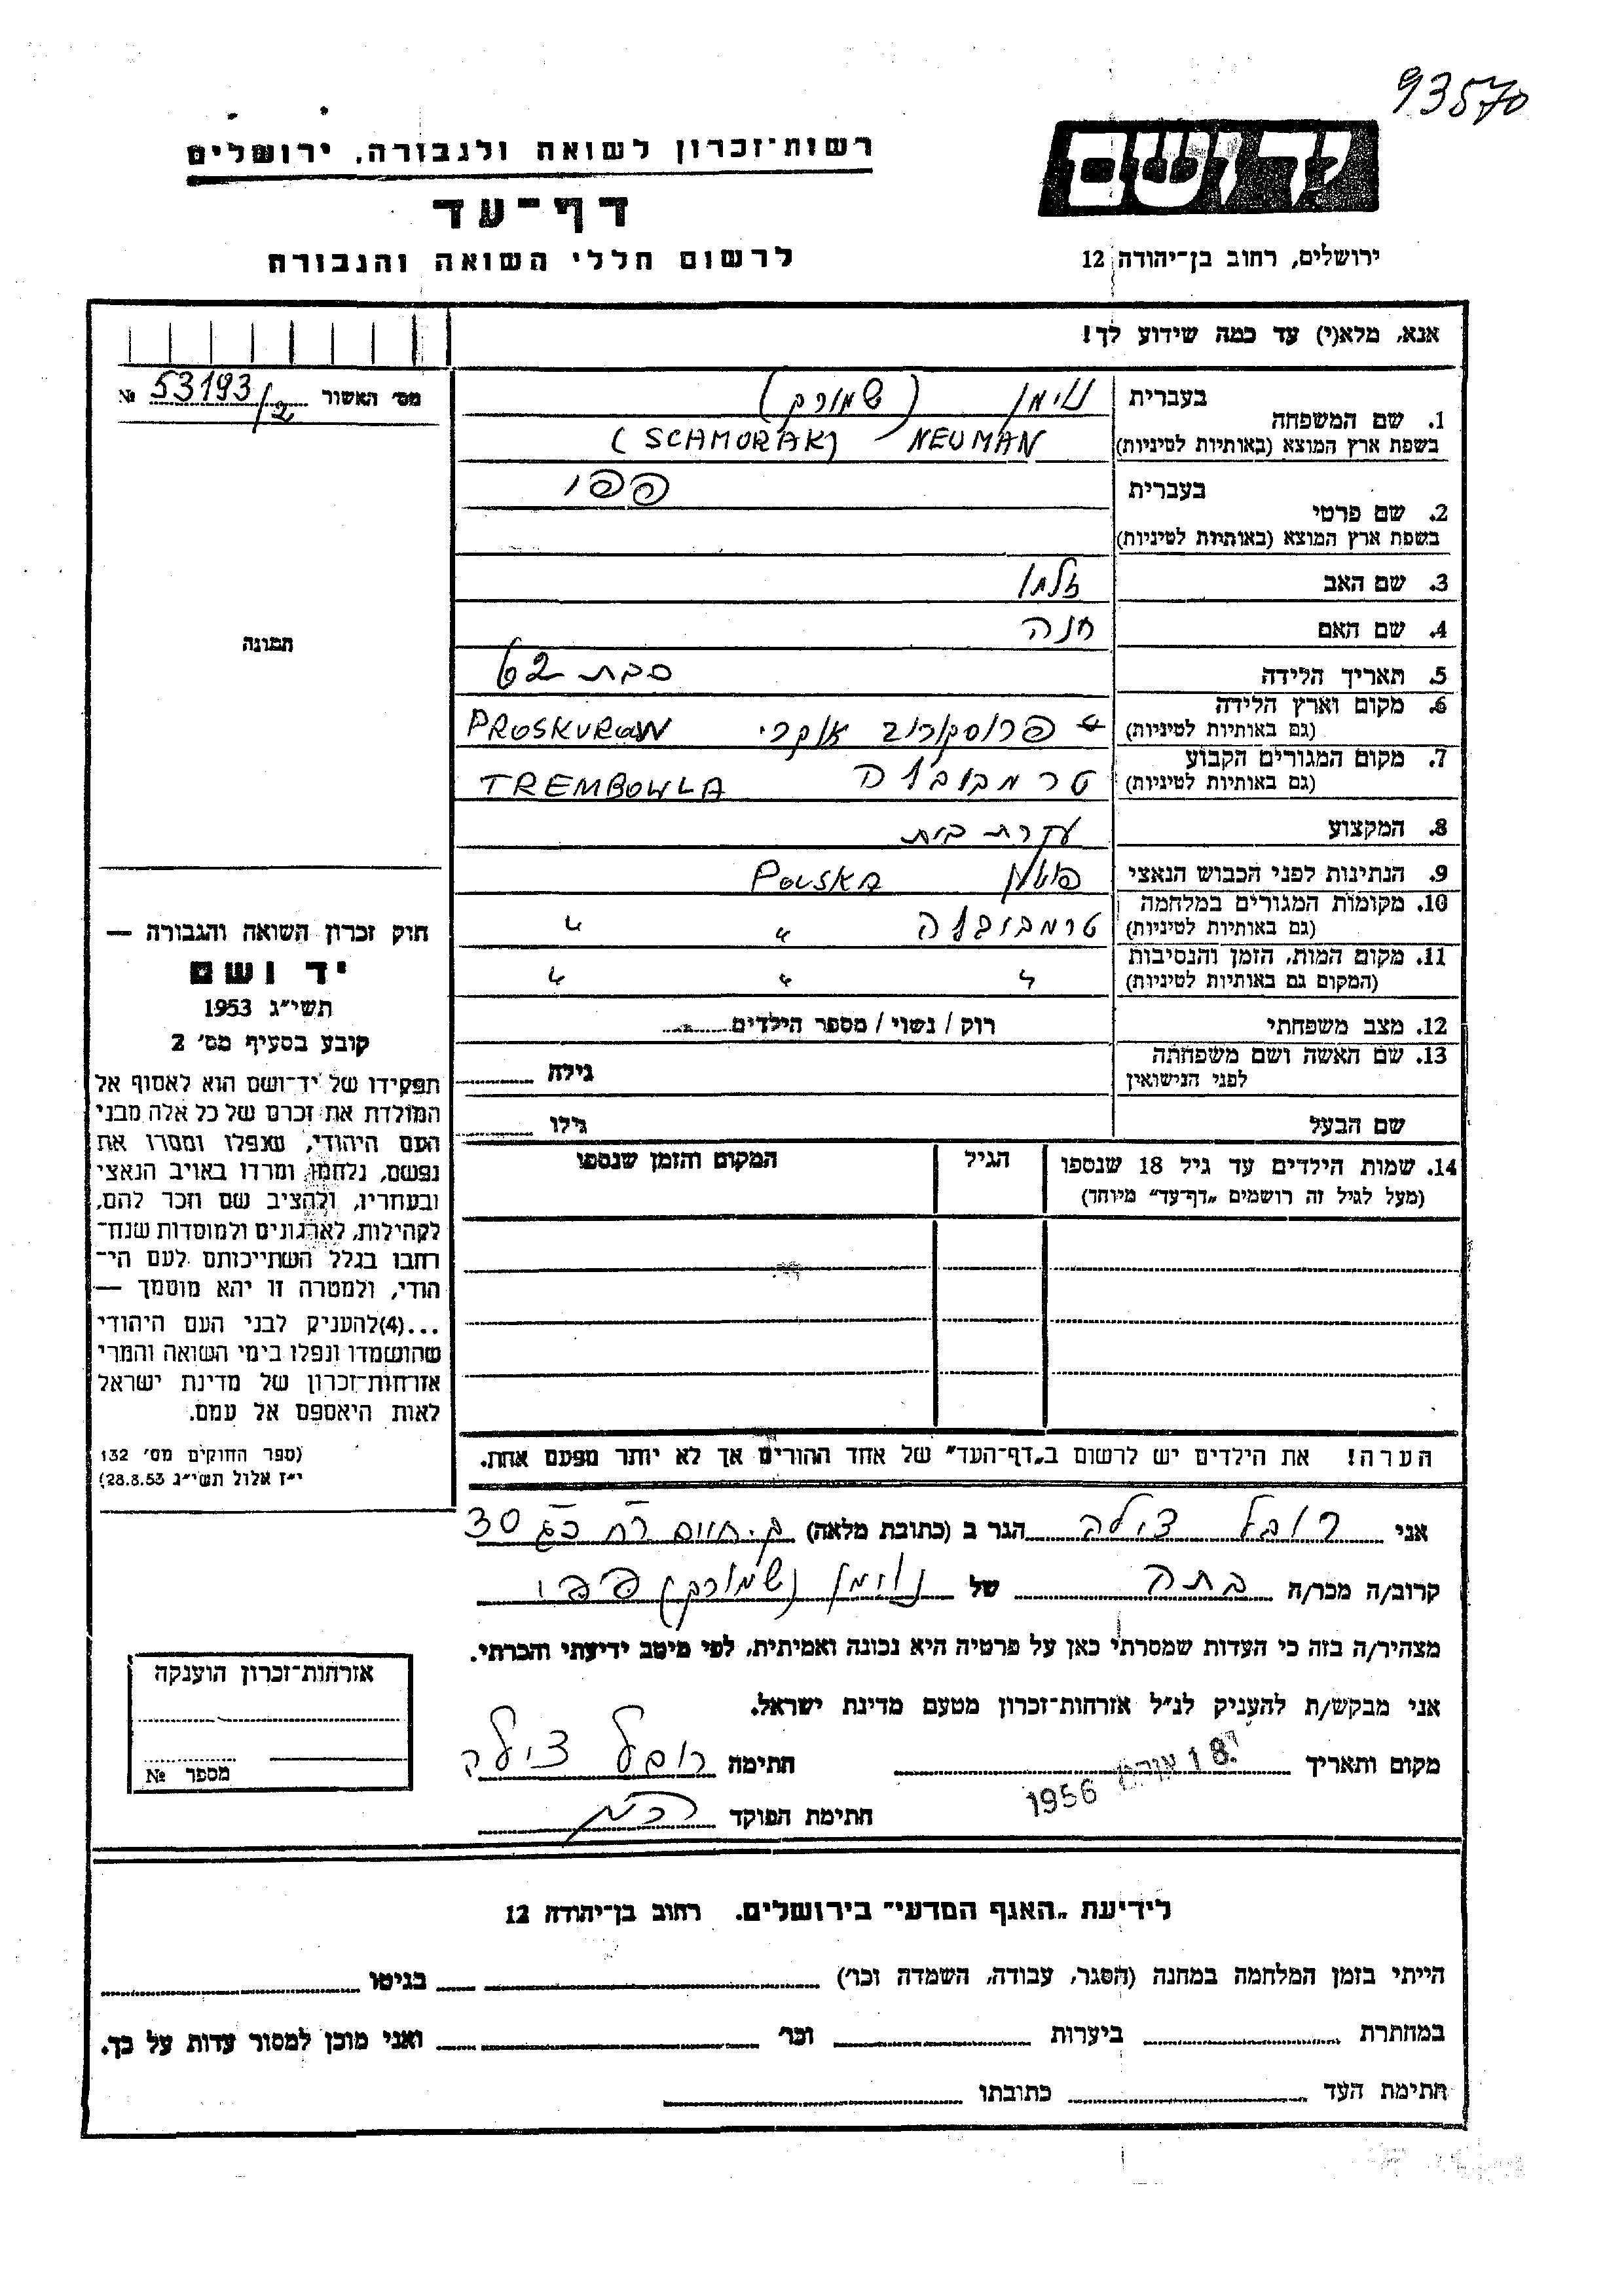 93570
רשות־זכרון לשואה ולגבורה, ירושלים
יד ושם
דף־עד
לרשום חללי השואה והגבורה
ירושלים, רחוב בן־יהודה 12
אנא, מלא(י) עד כמה שידוע לך!
מס׳ האשור 53193/2 №
1. שם המשפחה
בעברית נוימן (שמורק)
בשפת ארץ המוצא (באותיות לטיניות) NEUMAN (SCHMORAK)
2. שם פרטי
בעברית פפי
בשפת ארץ המוצא (באותיות לטיניות)
3. שם האב זלמן
4. שם האם חנה
5. תאריך הלידה כבת 62
6. מקום וארץ הלידה
(גם באותיות לטיניות) פרוסקורוב PROSKUROW
7. מקום המגורים הקבוע
(גם באותיות לטיניות) טרמבובלה TREMBOWLA
8. המקצוע עקרת בית
9. הנתינות לפני הכבוש הנאצי פולין POLSKA
10. מקומות המגורים במלחמה
(גם באותיות לטיניות) טרמבובלה " "
11. מקום המות, הזמן והנסיבות
(המקום גם באותיות לטיניות) " " "
12. מצב משפחתי רוק / נשוי / מספר הילדים
13. שם האשה ושם משפחתה
לפני הנישואין גילה
שם הבעל גילו
14. שמות הילדים עד גיל 18 שנספו הגיל המקום והזמן שנספו
(מעל לגיל זה רושמים „דף־עד״ מיוחד)
הערה! את הילדים יש לרשום ב„דף־העד״ של אחד ההורים אך לא יותר מפעם אחת.
תמונה
חוק זכרון השואה והגבורה —
יד ושם
תשי״ג 1953
קובע בסעיף מס׳ 2
תפקידו של יד־ושם הוא לאסוף אל
המולדת את זכרם של כל אלה מבני
העם היהודי, שנפלו ומסרו את
נפשם, נלחמו ומרדו באויב הנאצי
ובעוזריו, ולהציב שם וזכר להם,
לקהילות, לארגונים ולמוסדות שנח־
רבו בגלל השתייכותם לעם הי־
הודי, ולמטרה זו יהא מוסמך —
...(4)להעניק לבני העם היהודי
שהושמדו ונפלו בימי השואה והמרי
אזרחות־זכרון של מדינת ישראל
לאות היאספם אל עמם.
(ספר החוקים מס׳ 132
י״ז אלול תשי״ג 28.8.53)
אני רובל צילה הגר ב (כתובת מלאה) ק. חיים 30
קרוב/ה מכר/ה בתה של נוימן (שמורק) פפי
מצהיר/ה בזה כי העדות שמסרתי כאן על פרטיה היא נכונה ואמיתית, לפי מיטב ידיעתי והכרתי.
אני מבקש/ת להעניק לנ״ל אזרחות־זכרון מטעם מדינת ישראל.
מקום ותאריך 18 1956 חתימה רובל צילה
חתימת הפוקד
אזרחות־זכרון הוענקה
מספר №
לידיעת „האגף המדעי״ בירושלים. רחוב בן־יהודה 12
הייתי בזמן המלחמה במחנה (הסגר, עבודה, השמדה וכו׳) בגיטו
במחתרת ביערות וכו׳ ואני מוכן למסור עדות על כך.
חתימת העד כתובתו